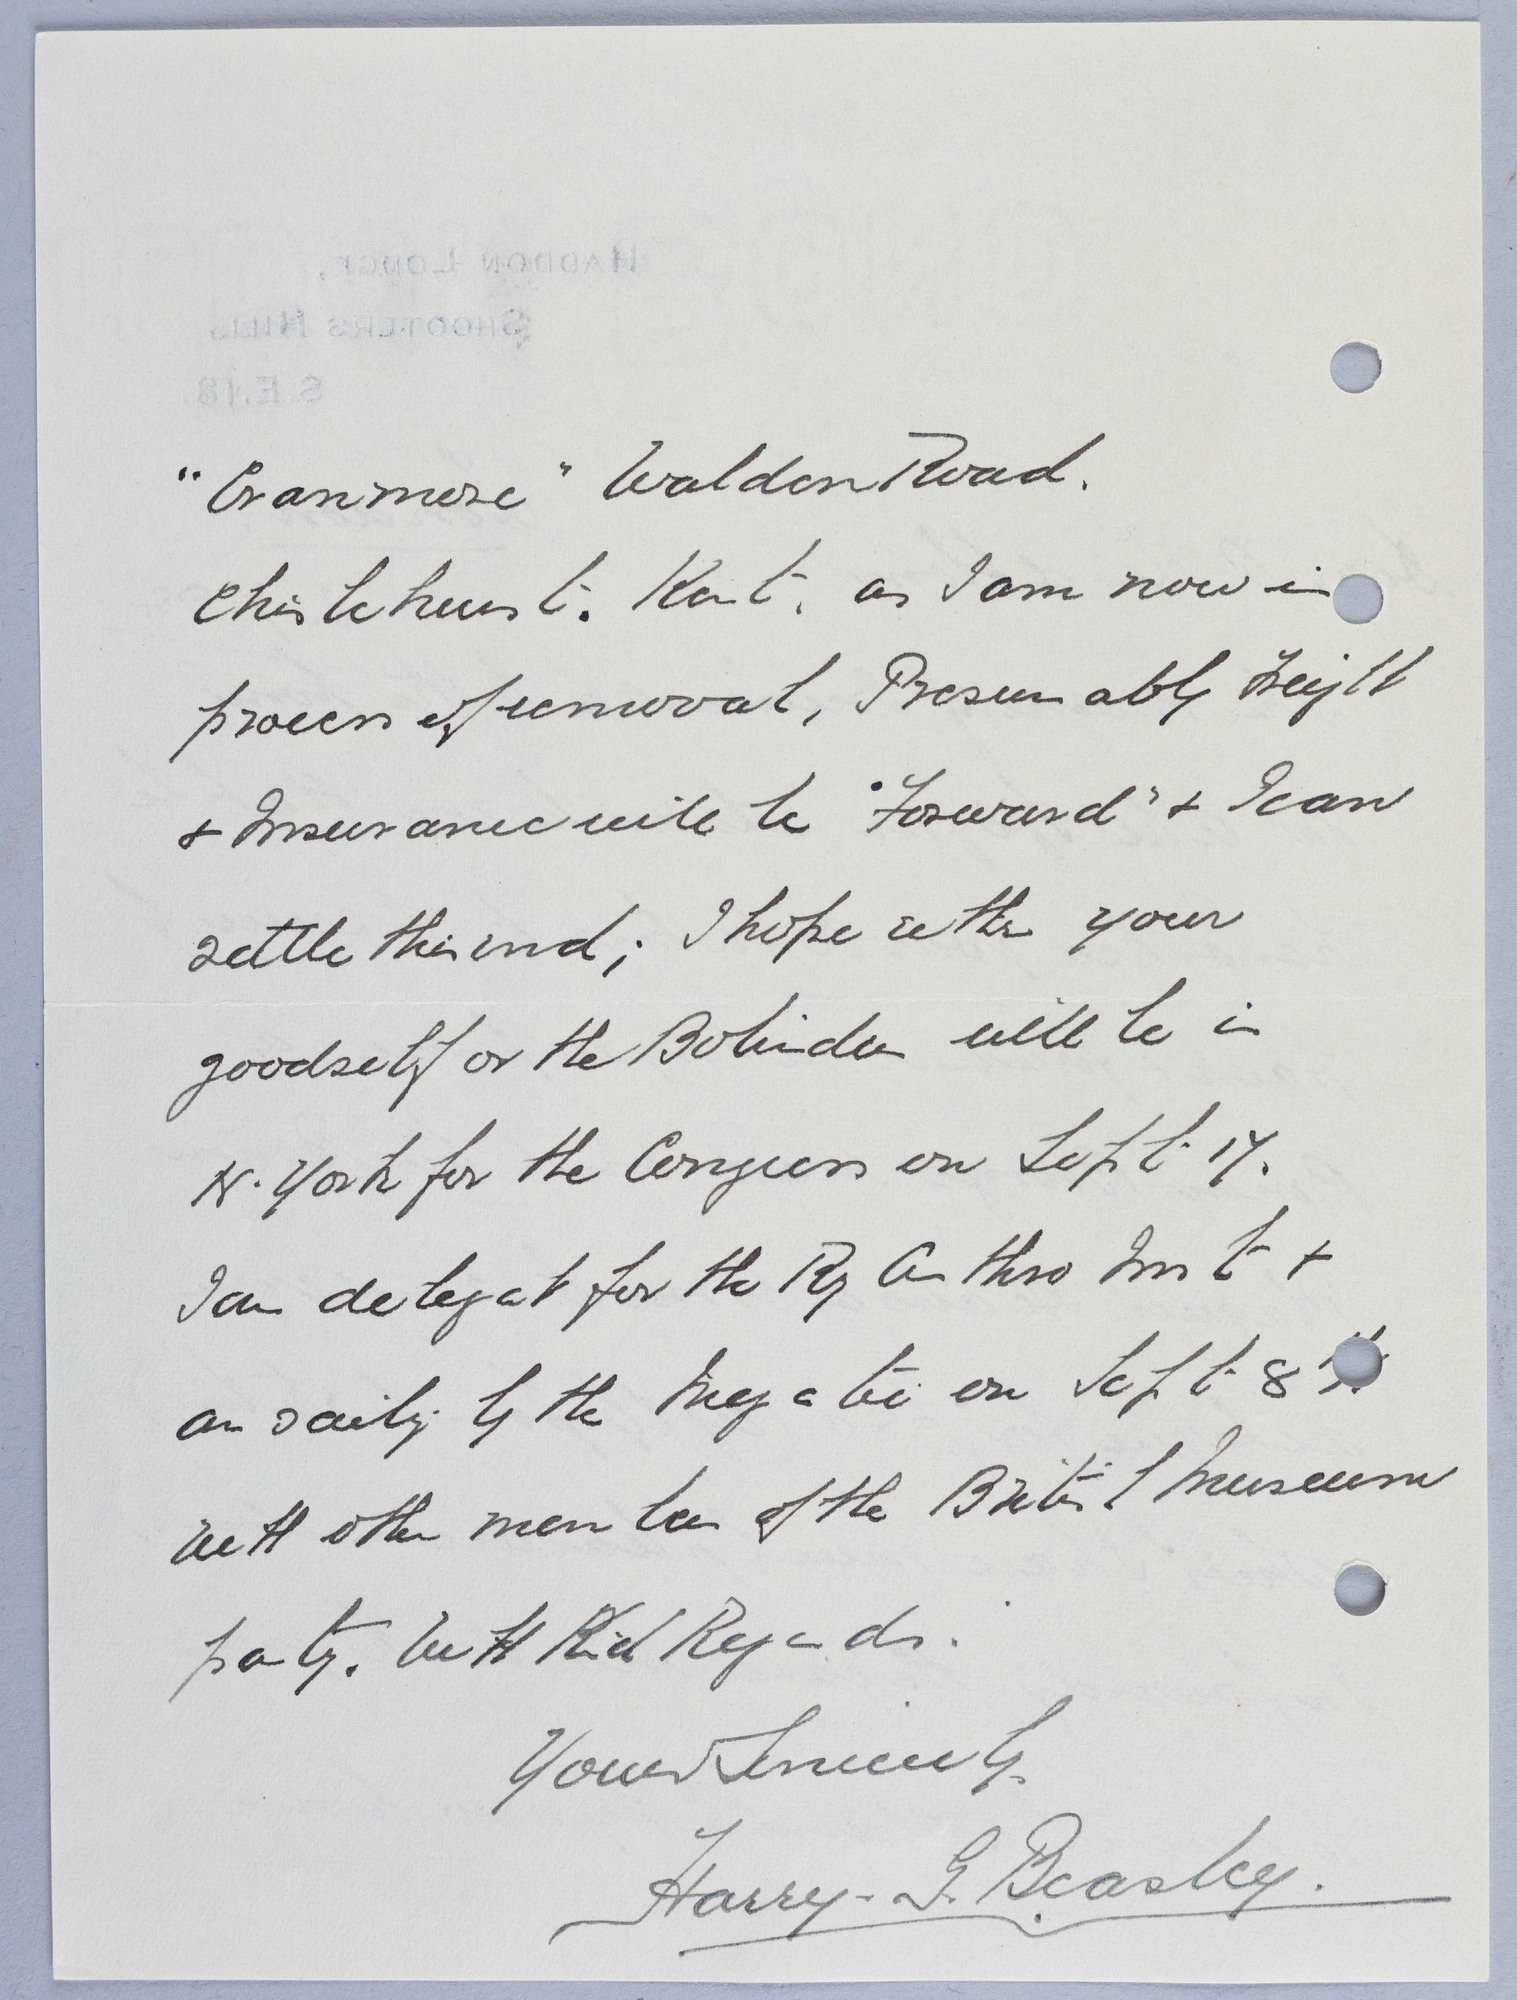 HADDON LODGE,
SHOOTERS HILL,
S.E.18.
"Cranmore" Walden Road.
Chislehurst. Kent. as I am now in
process of removal, Presumably Freight
& Insurance will be "Forward" & I can
settle this end; I hope either your
goodself or the will be in
N. York for the Congress on Sept 17.
I am delegate for the Ry Anthro Inst &
am sailing by the on Sept 8th
with other members of the British Museum
party. With Kind Regards.
Yours Sincerely
Harry. G. Beasley.